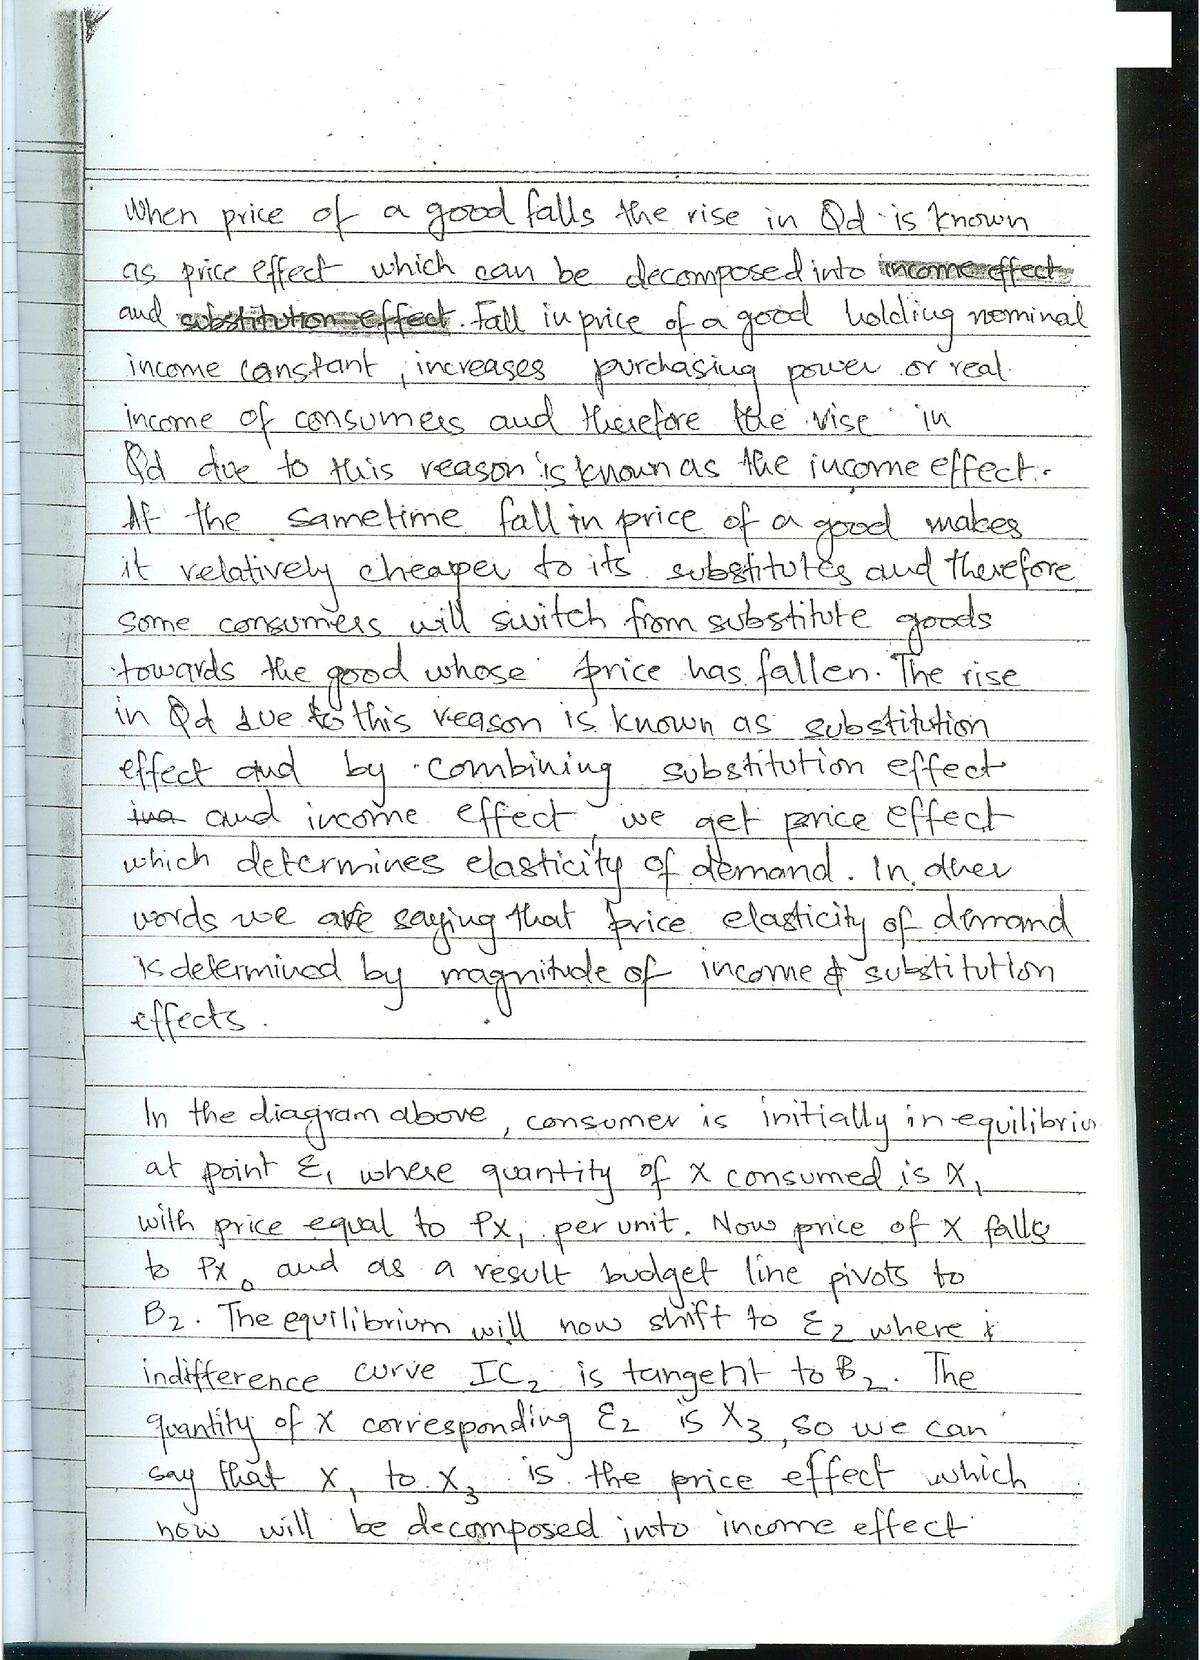 When price of a good falls the rise in Qd is known
as price effect which can be decomposed into income effect
and substitution effect. Fall in price of a good holding nominal
income constant, increases purchasing power or real
income of consumers and therefore the rise in
Qd due to this reason is known as the income effect.
At the sametime fall in price of a good makes
it relatively cheaper to its substitutes and therefore
some consumers will switch from substitute goods
towards the good whose price has fallen. The rise
in Qd due to this reason is known as substitution
effect and by combining substitution effect
ina and income effect, we get price effect
which determines elasticity of demand. In other
words we are saying that price elasticity of demand
is determined by magnitude of income & substitution
effects.
In the diagram above, consumer is initially in equilibriu
at point E₁ where quantity of X consumed is X₁
with price equal to Px₁ per unit. Now price of X falls
to Px₀ and as a result budget line pivots to
B₂. The equilibrium will now shift to E₂ where
indifference curve IC₂ is tangent to B₂. The
quantity of X corresponding E₂ is X₃, so we can
say that X₁ to X₃ is the price effect which
now will be decomposed into income effect